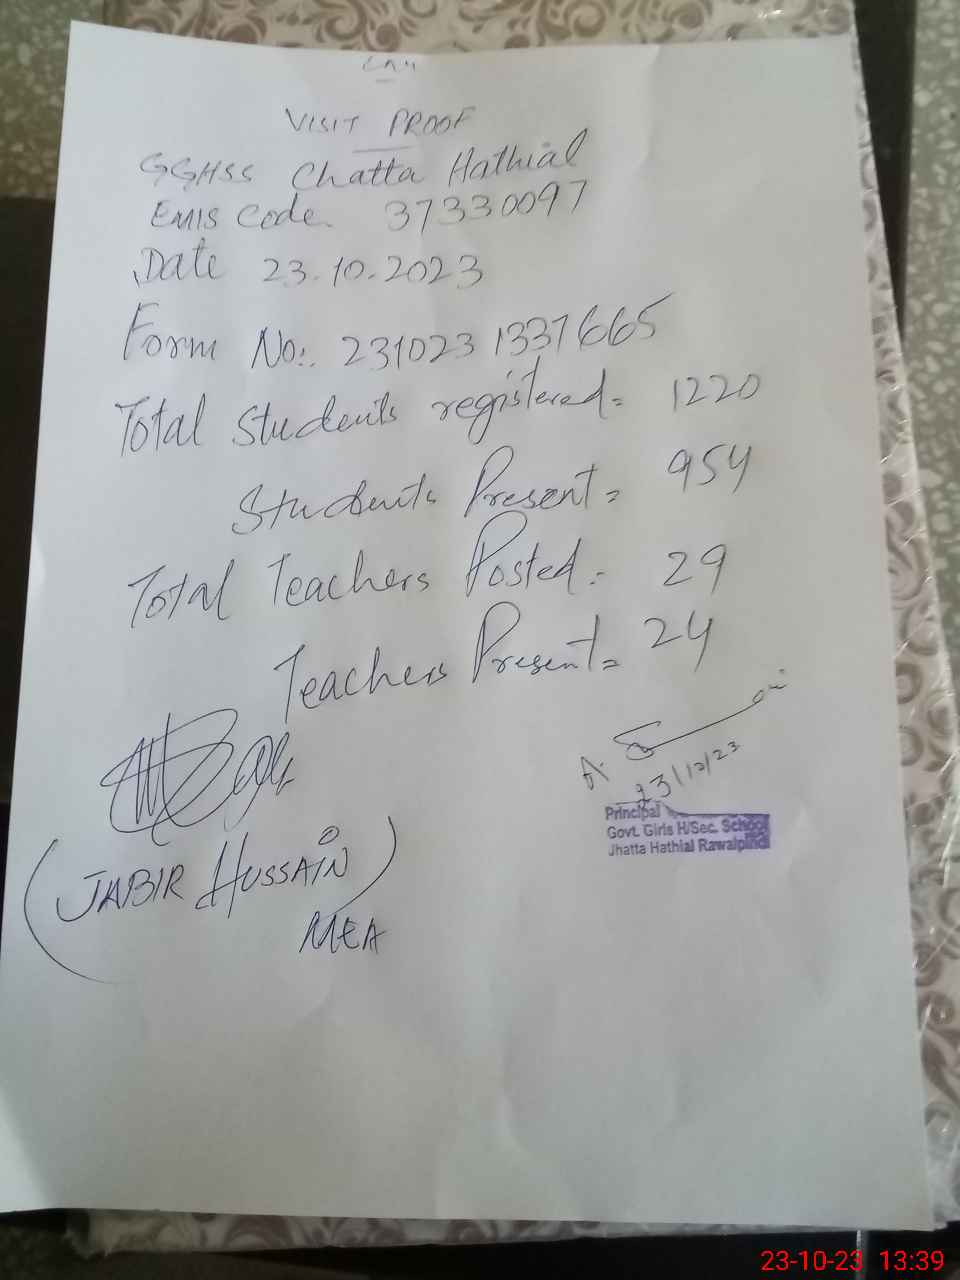 VISIT PROOF
GGHSS Chatta Hathial
EMIS Code. 37330097
Date 23.10.2023
Form No:. 2310231337665
Total Students registered = 1220
Students Present = 954
Total Teachers Posted = 29
Teachers Present = 24
23/10/23
Principal
Govt. Girls H/Sec. School
Jhatta Hathial Rawalpindi
(JABIR HUSSAIN)
MEA
23-10-23 13:39